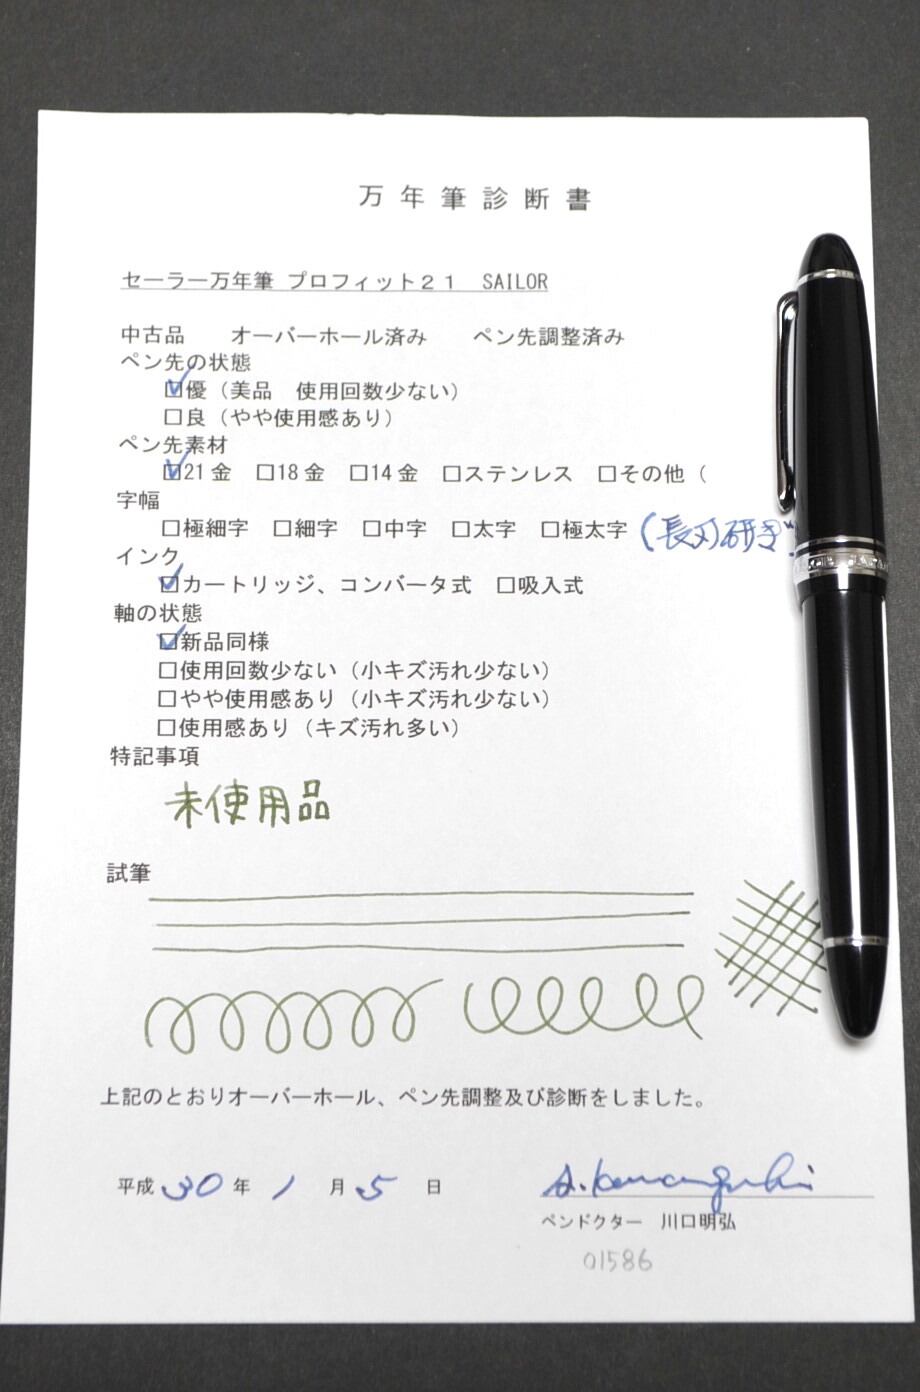 万年筆診断書
セーラー万年筆 プロフィット２１ SAILOR
中古品 オーバーホール済み ペン先調整済み
ペン先の状態
☑優（美品 使用回数少ない）
□良（やや使用感あり）
ペン先素材
☑21金 □18金 □14金 □ステンレス □その他（
字幅
□極細字 □細字 □中字 □太字 □極太字（長刃研ぎ）
インク
☑カートリッジ、コンバータ式 □吸入式
軸の状態
☑新品同様
□使用回数少ない（小キズ汚れ少ない）
□やや使用感あり（小キズ汚れ少ない）
□使用感あり（キズ汚れ多い）
特記事項
未使用品
試筆
上記のとおりオーバーホール、ペン先調整及び診断をしました。
平成 30 年 1 月 5 日
A. Kawaguchi
ペンドクター 川口明弘
01586